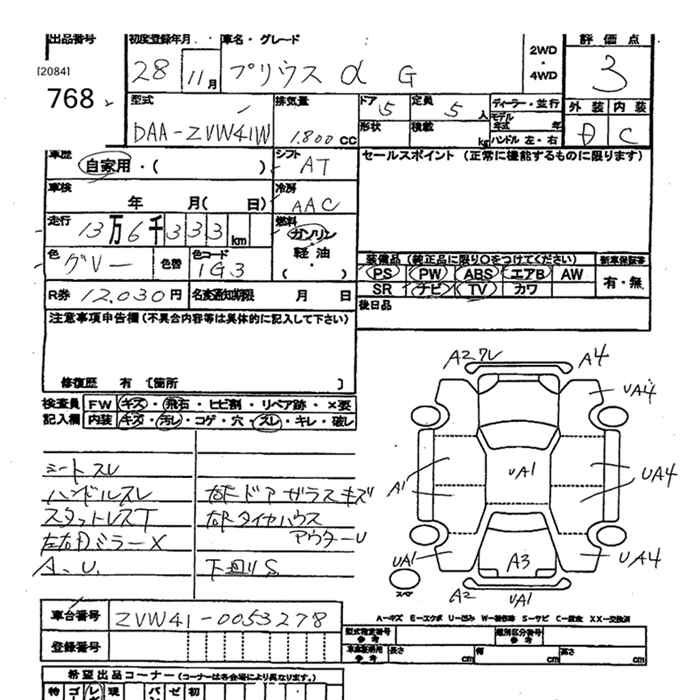 出品番号 初度登録年月 車名・グレード 2WD・4WD 評価点
[2084] 28 11月 プリウス α G 3
768
型式 排気量 ドア 5 定員 5人 ディーラー・並行 外装 内装
DAA-ZVW41W 1,800cc 形状 積載 kg モデル年式 年 D C
ハンドル 左・右
車歴 自家用・( ) シフト AT セールスポイント (正常に機能するものに限ります)
車検 年 月( 日) 冷房 AAC
走行 13万6千333km 燃料 ガソリン・軽油・( )
色 グレー 色替 色コード 1G3
装備品 (純正品に限り○をつけてください) 新車保証書
PS PW ABS エアB AW 有・無
SR ナビ TV カワ
R券 12,030円 名変通知期限 月 日 後日品
注意事項申告欄(不具合内容等は具体的に記入して下さい)
修復歴 有 〔箇所 〕
検査員 FW キズ・飛石・ヒビ割・リペア跡・×要
記入欄 内装 キズ・汚レ・コゲ・穴・スレ・キレ・破レ
シートスレ
ハンドルスレ 右F ドア ガラスキズ
スタットレスT 右F タイヤハウス
左右Dミラー X アウターU
A、U、 下回りS
A2 ワレ A4
UA4
A1 UA1 UA4
UA1 A3 UA4
スペア A2 UA1
車台番号 ZVW41-0053278
A=キズ E=エクボ U=凹み W=補修跡 S=サビ C=腐食 XX=交換済
登録番号
型式指定番号 参考 類別区分番号 参考
車庫証明用 参考 長さ cm 幅 cm 高さ cm
希望出品コーナー (コーナーは各会場により異なります。)